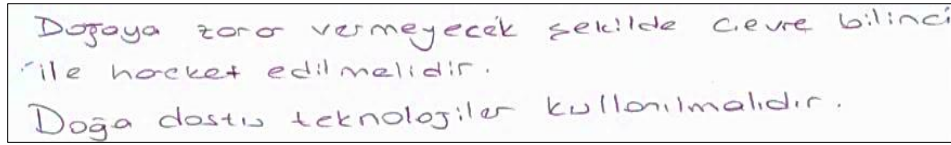 Doğaya zarar vermeyecek şekilde çevre bilinci
ile hareket edilmelidir.
Doğa dostu teknolojiler kullanılmalıdır.